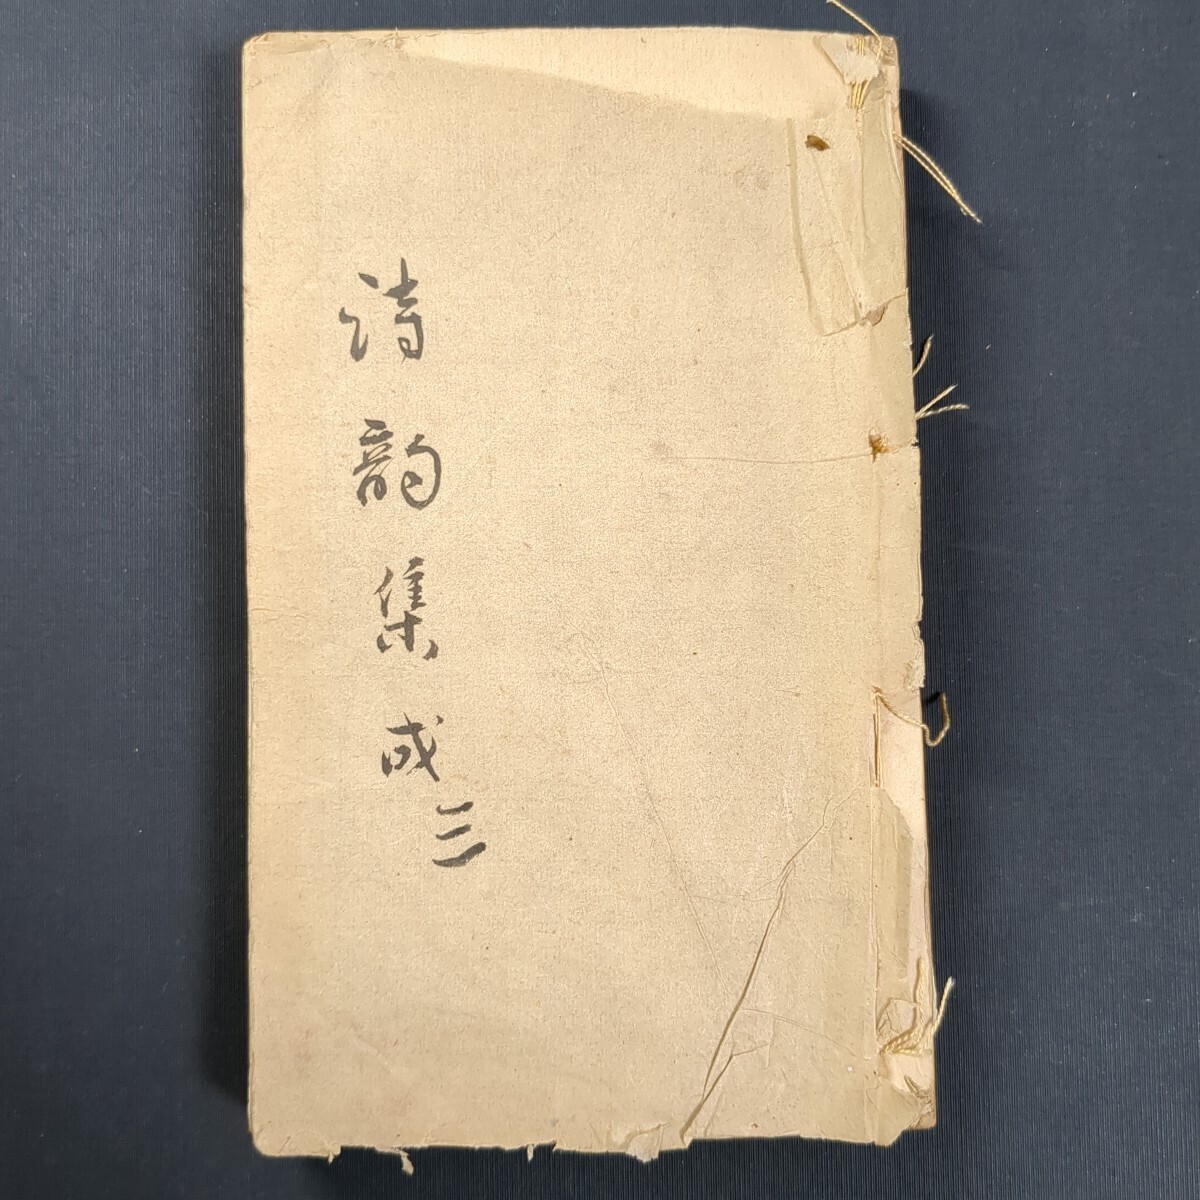 詩韵集成三